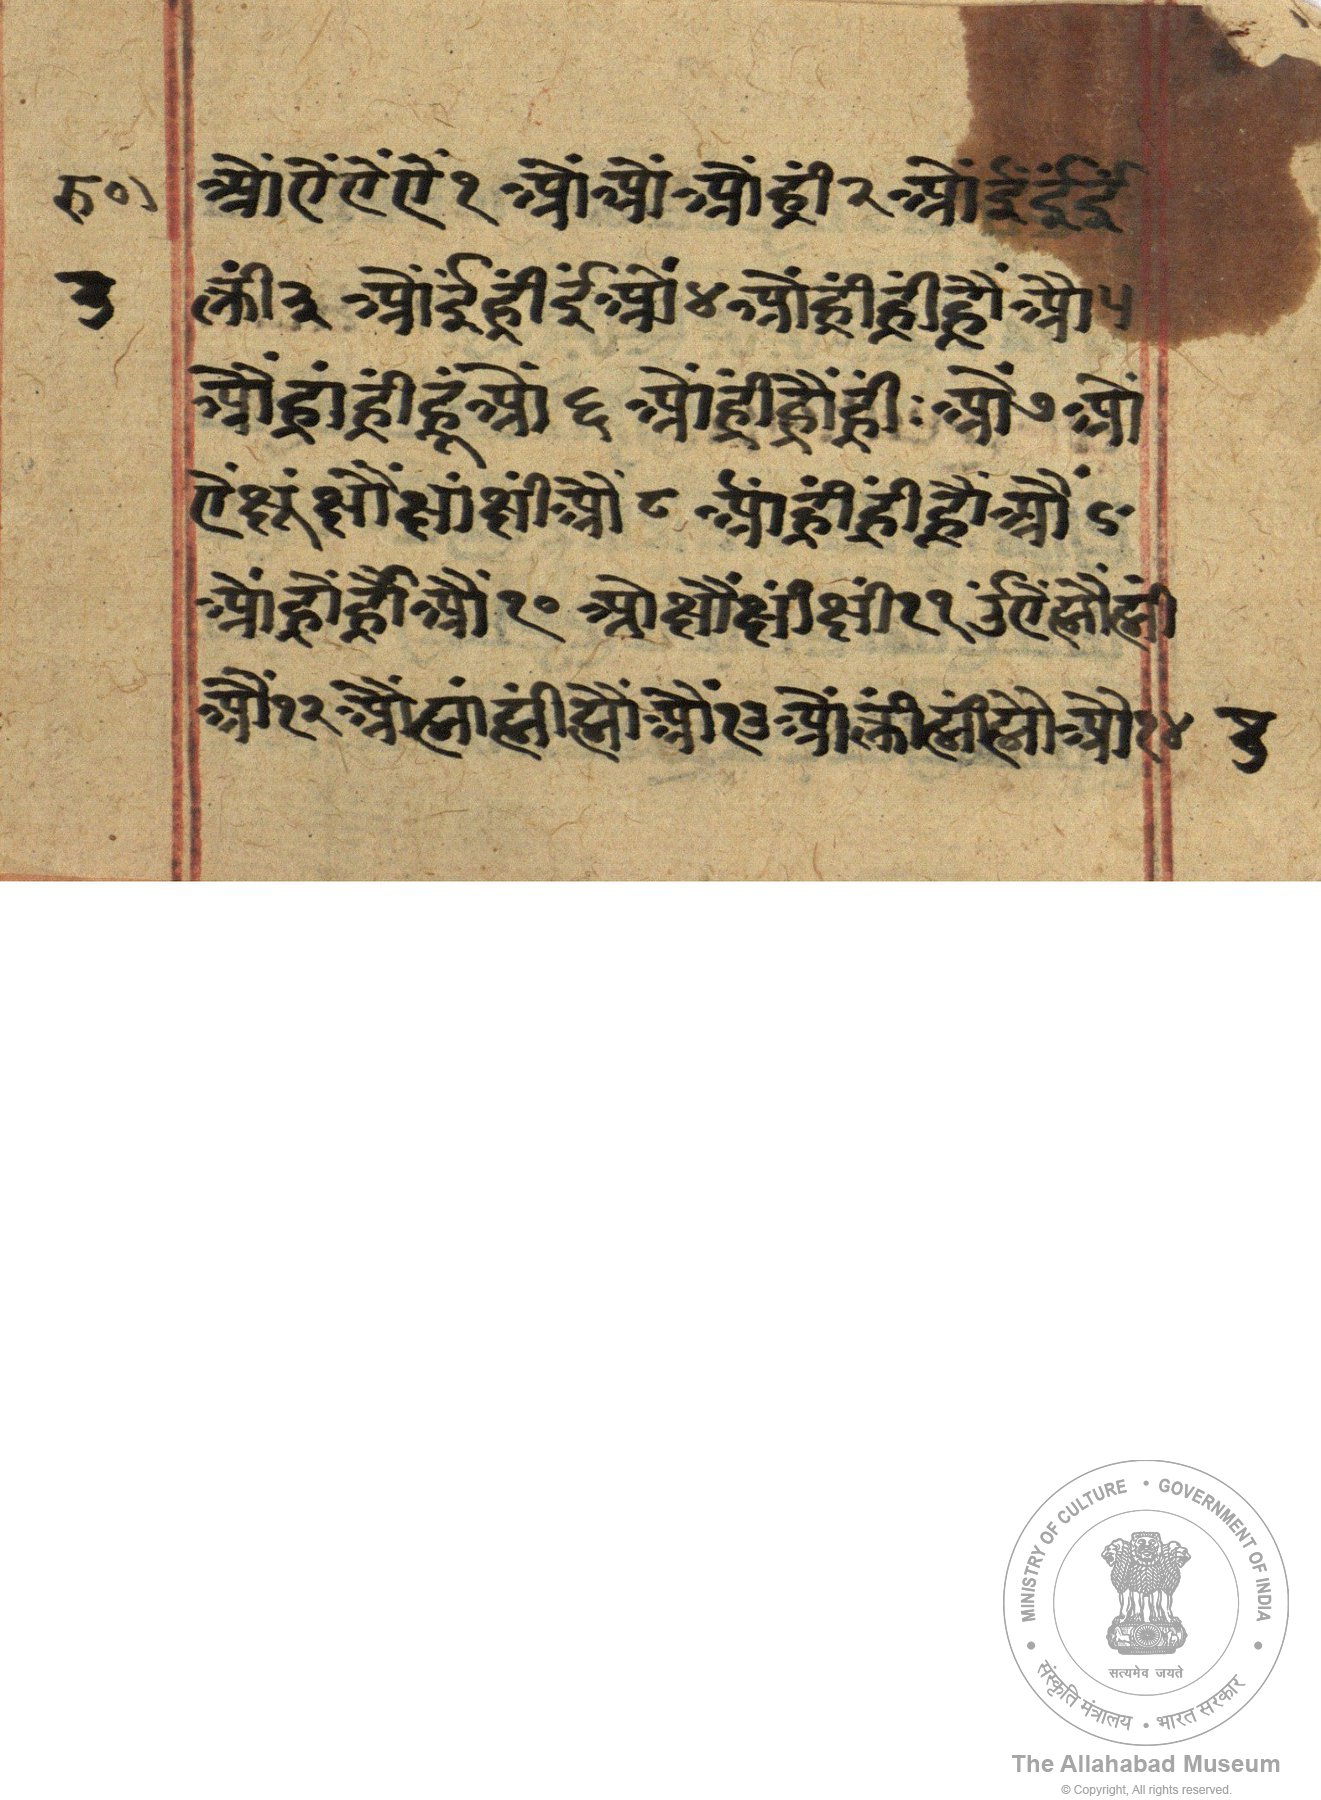 ओं ऐं ऐं ऐं १ ओं ओं ओं ह्रीं २ ओं ईं ईं ईं
क्लीं ३ ओं ईं ह्रीं ईं ओं ४ ओं ह्रीं ह्रीं ह्रौं ओ ५
ओं ह्रां ह्रीं ह्रूं ओं ६ ओं ह्रीं ह्रौं ह्रीं ः ओं ७ ओं
ऐं क्षूं क्षौं क्षां क्षीं औं ८ आं ह्रीं ह्रीं ह्रौं औं ९
ओं ह्रों ह्रौं औं १० ओ क्षौं क्षीं क्षीं ११ ऐं
औं १२ औं औं १३ ओं क्लीं औ १४
३
३
MINISTRY OF CULTURE • GOVERNMENT OF INDIA
सत्यमेव जयते
संस्कृति मंत्रालय • भारत सरकार
The Allahabad Museum
© Copyright, All rights reserved.